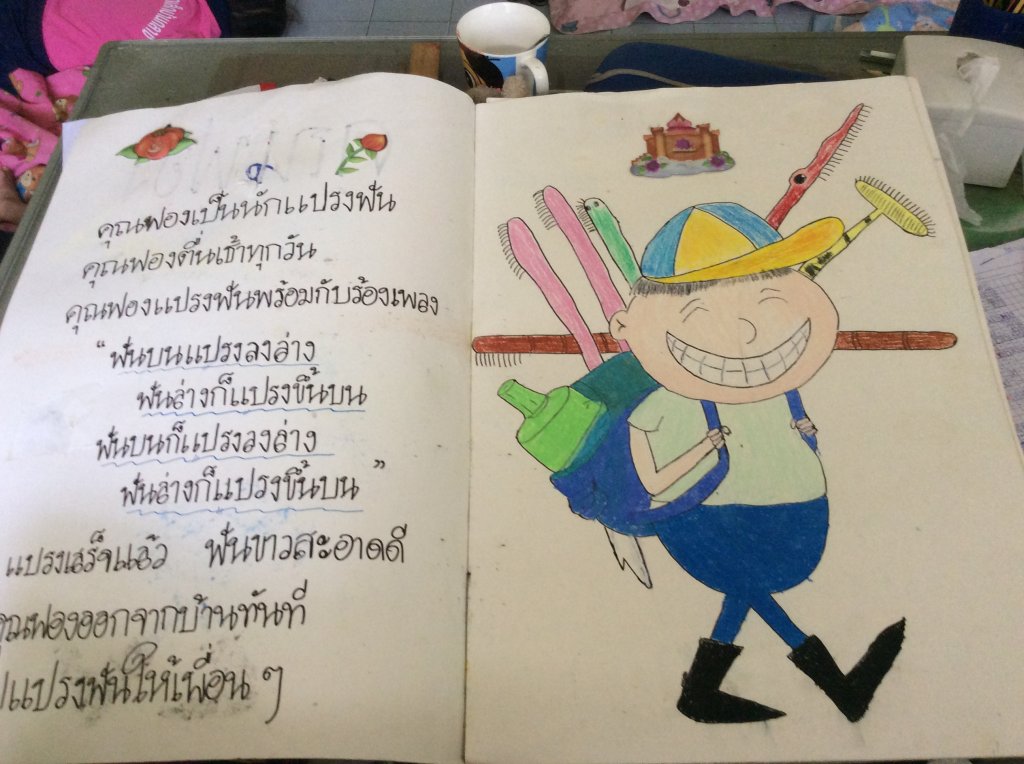 คุณฟองเป็นนักแปรงฟัน
คุณฟองตื่นเช้าทุกวัน
คุณฟองแปรงฟันพร้อมกับร้องเพลง
“ฟันบนแปรงลงล่าง
ฟันล่างก็แปรงขึ้นบน
ฟันบนก็แปรงลงล่าง
ฟันล่างก็แปรงขึ้นบน”
แปรงเสร็จแล้ว ฟันขาวสะอาดดี
คุณฟองออกจากบ้านทันที
ไปแปรงฟันให้เพื่อน ๆ